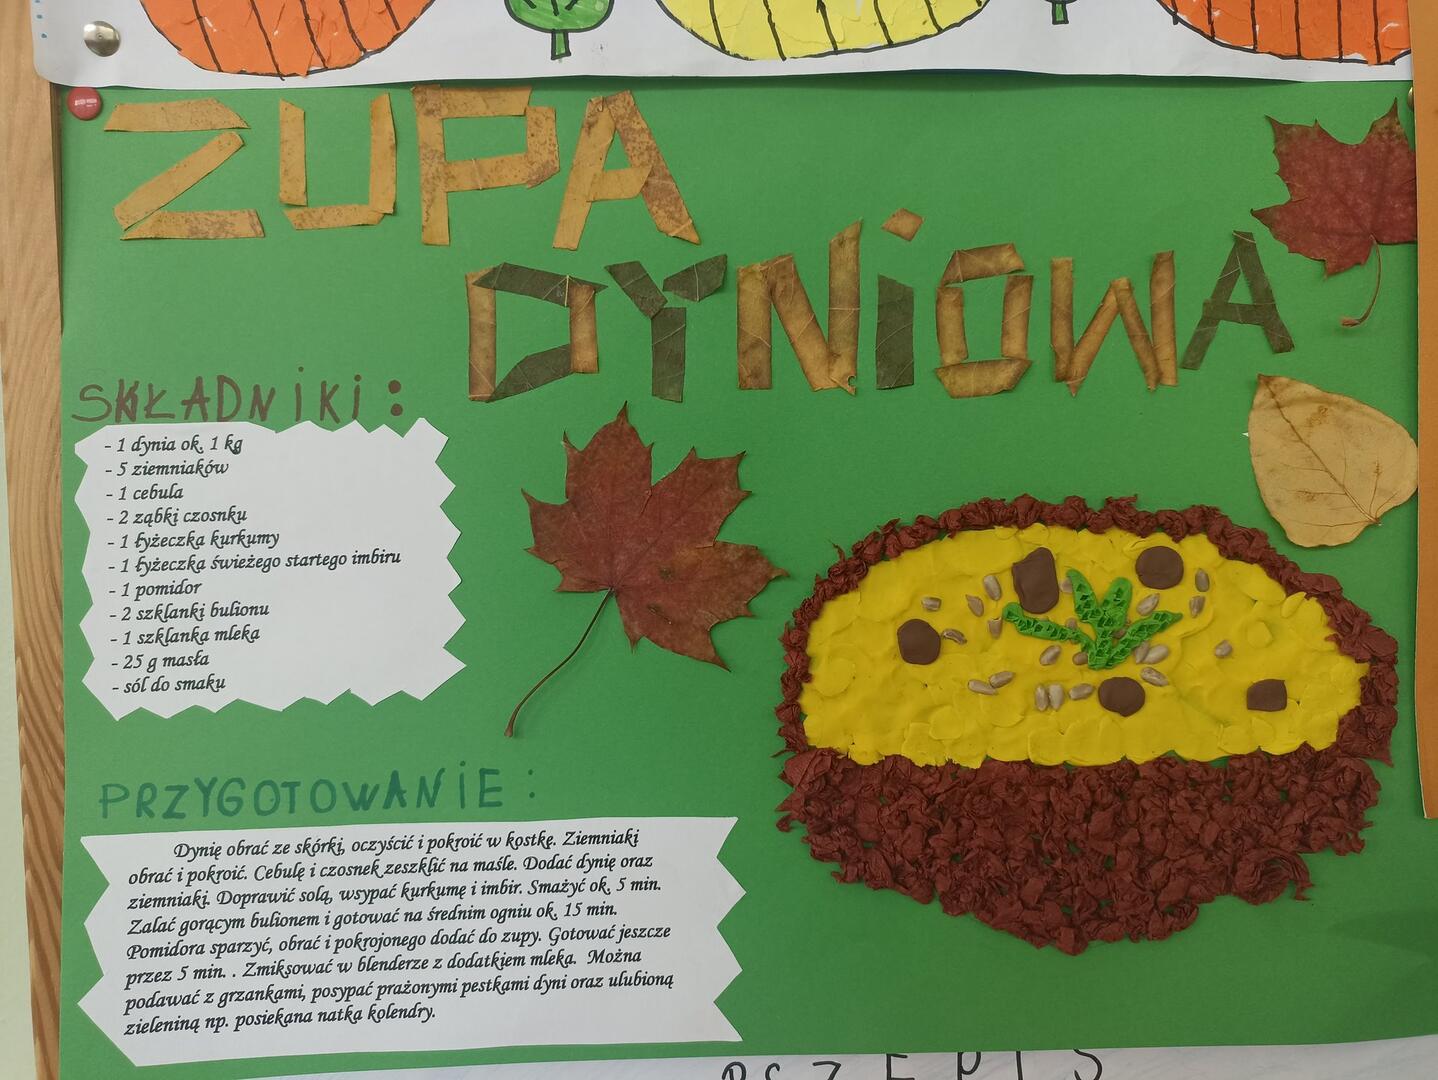 ZUPA
DYNiOWA
SKŁADNiKi:
- 1 dynia ok. 1 kg
- 5 ziemniaków
- 1 cebula
- 2 ząbki czosnku
- 1 łyżeczka kurkumy
- 1 łyżeczka świeżego startego imbiru
- 1 pomidor
- 2 szklanki bulionu
- 1 szklanka mleka
- 25 g masła
- sól do smaku
PRZYGOTOWANiE:
Dynię obrać ze skórki, oczyścić i pokroić w kostkę. Ziemniaki
obrać i pokroić. Cebulę i czosnek zeszklić na maśle. Dodać dynię oraz
ziemniaki. Doprawić solą, wsypać kurkumę i imbir. Smażyć ok. 5 min.
Zalać gorącym bulionem i gotować na średnim ogniu ok. 15 min.
Pomidora sparzyć, obrać i pokrojonego dodać do zupy. Gotować jeszcze
przez 5 min. . Zmiksować w blenderze z dodatkiem mleka. Można
podawać z grzankami, posypać prażonymi pestkami dyni oraz ulubioną
zieleniną np. posiekana natka kolendry.